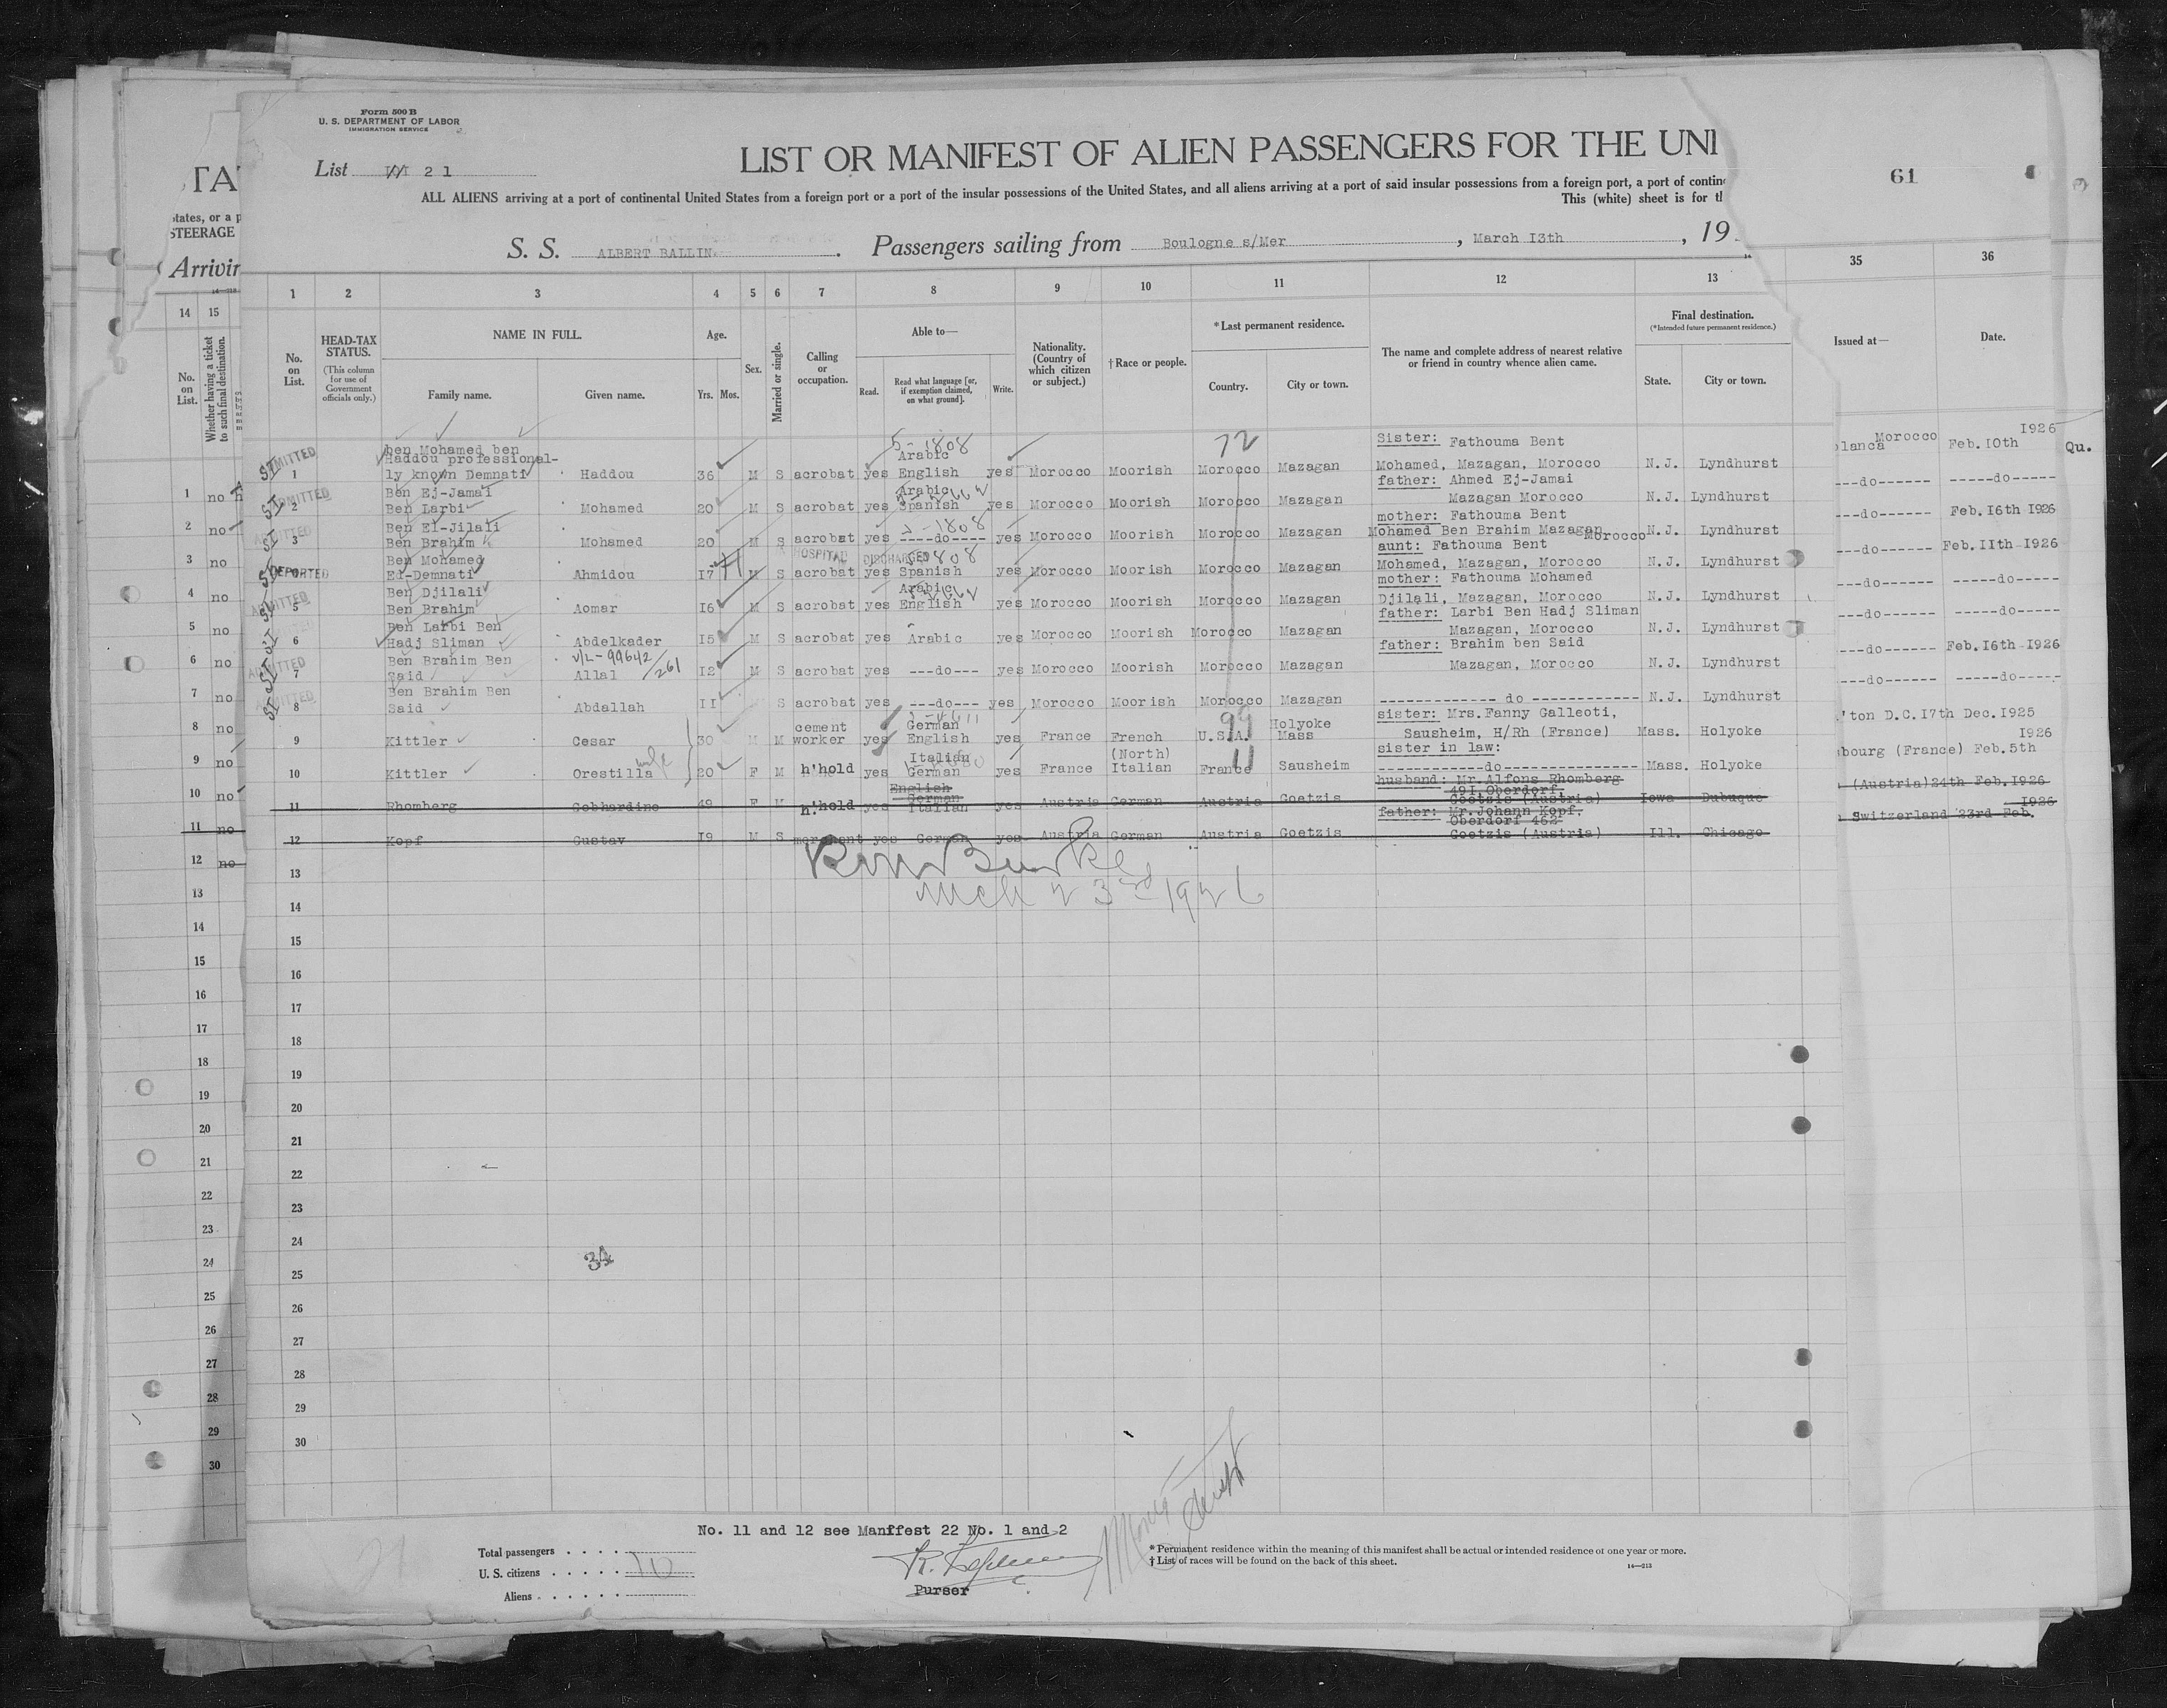 Form 500 B
U. S. DEPARTMENT OF LABOR
IMMIGRATION SERVICE
List 21
LIST OR MANIFEST OF ALIEN PASSENGERS FOR THE UNI
61
ALL ALIENS arriving at a port of continental United States from a foreign port or a port of the insular possessions of the United States, and all aliens arriving at a port of said insular possessions from a foreign port, a port of contin
This (white) sheet is for th
TAT
states, or a p
STEERAGE
Arrivin
S. S. ALBERT BALLIN. Passengers sailing from Boulogne s/Mer, March 13th, 19
14 15 1 2 3 4 5 6 7 8 9 10 11 12 13 35 36
No. on List.
Whether having a ticket to such final destination.
No. on List.
HEAD-TAX STATUS.
(This column for use of Government officials only.)
NAME IN FULL.
Family name. Given name.
Age.
Yrs. Mos.
Sex.
Married or single.
Calling or occupation.
Able to—
Read. Read what language [or, if exemption claimed, on what ground]. Write.
Nationality. (Country of which citizen or subject.)
† Race or people.
* Last permanent residence.
Country. City or town.
The name and complete address of nearest relative or friend in country whence alien came.
Final destination.
(*Intended future permanent residence.)
State. City or town.
Issued at—
Date.
1 ben Mohamed ben Haddou professional-ly known Demnati Haddou 36 M S acrobat yes Arabic English yes Morocco Moorish Morocco Mazagan Sister: Fathouma Bent Mohamed, Mazagan, Morocco N.J. Lyndhurst
ADMITTED
5-1808
72
blanca Morocco Feb. 10th 1926
Qu.
2 Ben Ej-Jamai Ben Larbi Mohamed 20 M S acrobat yes Arabic Spanish yes Morocco Moorish Morocco Mazagan father: Ahmed Ej-Jamai Mazagan Morocco N.J. Lyndhurst
ADMITTED
---do------ -----do-----
3 Ben El-Jilali Ben Brahim Mohamed 20 M S acrobat yes ----do---- yes Morocco Moorish Morocco Mazagan mother: Fathouma Bent Mohamed Ben Brahim Mazagan Morocco N.J. Lyndhurst
ADMITTED
---do------ Feb. 16th 1926
4 Ben Mohamed Ed-Demnati Ahmidou 17 M S acrobat yes Spanish yes Morocco Moorish Morocco Mazagan aunt: Fathouma Bent Mohamed, Mazagan, Morocco N.J. Lyndhurst
DEPORTED
HOSPITAL DISCHARGED
---do------ Feb. 11th 1926
5 Ben Djilali Ben Brahim Aomar 16 M S acrobat yes Arabic English yes Morocco Moorish Morocco Mazagan mother: Fathouma Mohamed Djilali, Mazagan, Morocco N.J. Lyndhurst
ADMITTED
---do------ -----do-----
6 Ben Larbi Ben Hadj Sliman Abdelkader 15 M S acrobat yes Arabic yes Morocco Moorish Morocco Mazagan father: Larbi Ben Hadj Sliman Mazagan, Morocco N.J. Lyndhurst
---do------ -----do-----
7 Ben Brahim Ben Said Allal 12 M S acrobat yes ---do--- yes Morocco Moorish Morocco Mazagan father: Brahim ben Said Mazagan, Morocco N.J. Lyndhurst
ADMITTED
V/L-99642/261
---do------ Feb. 16th 1926
8 Ben Brahim Ben Said Abdallah 11 S acrobat yes ---do--- yes Morocco Moorish Morocco Mazagan ------------- do ------------ N.J. Lyndhurst
ADMITTED
---do------ -----do-----
9 Kittler Cesar 30 M M cement worker yes German English yes France French U.S.A. Holyoke Mass sister: Mrs. Fanny Galleoti, Sausheim, H/Rh (France) Mass. Holyoke
99
'ton D.C. 17th Dec. 1925
10 Kittler Orestilla wife 20 F M h'hold yes Italian German yes France (North) Italian France Sausheim sister in law: ------------do-------------- Mass. Holyoke
11
bourg (France) Feb. 5th 1926
11 Rhomberg Gebhardine 49 F M h'hold yes English German Italian yes Austria German Austria Goetzis husband: Mr. Alfons Rhomberg 491 Oberdorf Goetzis (Austria) Iowa Dubuque
(Austria) 24th Feb. 1926
12 Kopf Gustav 19 M S merchant yes German yes Austria German Austria Goetzis father: Mr. Johann Kopf, Oberdorf 462 Goetzis (Austria) Ill. Chicago
Switzerland 23rd Feb. 1926
Mch 23rd 1926
13
14
15
16
17
18
19
20
21
22
23
24
34
25
26
27
28
29
30
1 no
2 no
3 no
4 no
5 no
6 no
7 no
8 no
9 no
10 no
11 no
12 no
13
14
15
16
17
18
19
20
21
22
23
24
25
26
27
28
29
30
No. 11 and 12 see Manffest 22 No. 1 and 2
Total passengers
U. S. citizens
Aliens
10
Purser
* Permanent residence within the meaning of this manifest shall be actual or intended residence of one year or more.
† List of races will be found on the back of this sheet.
14—213